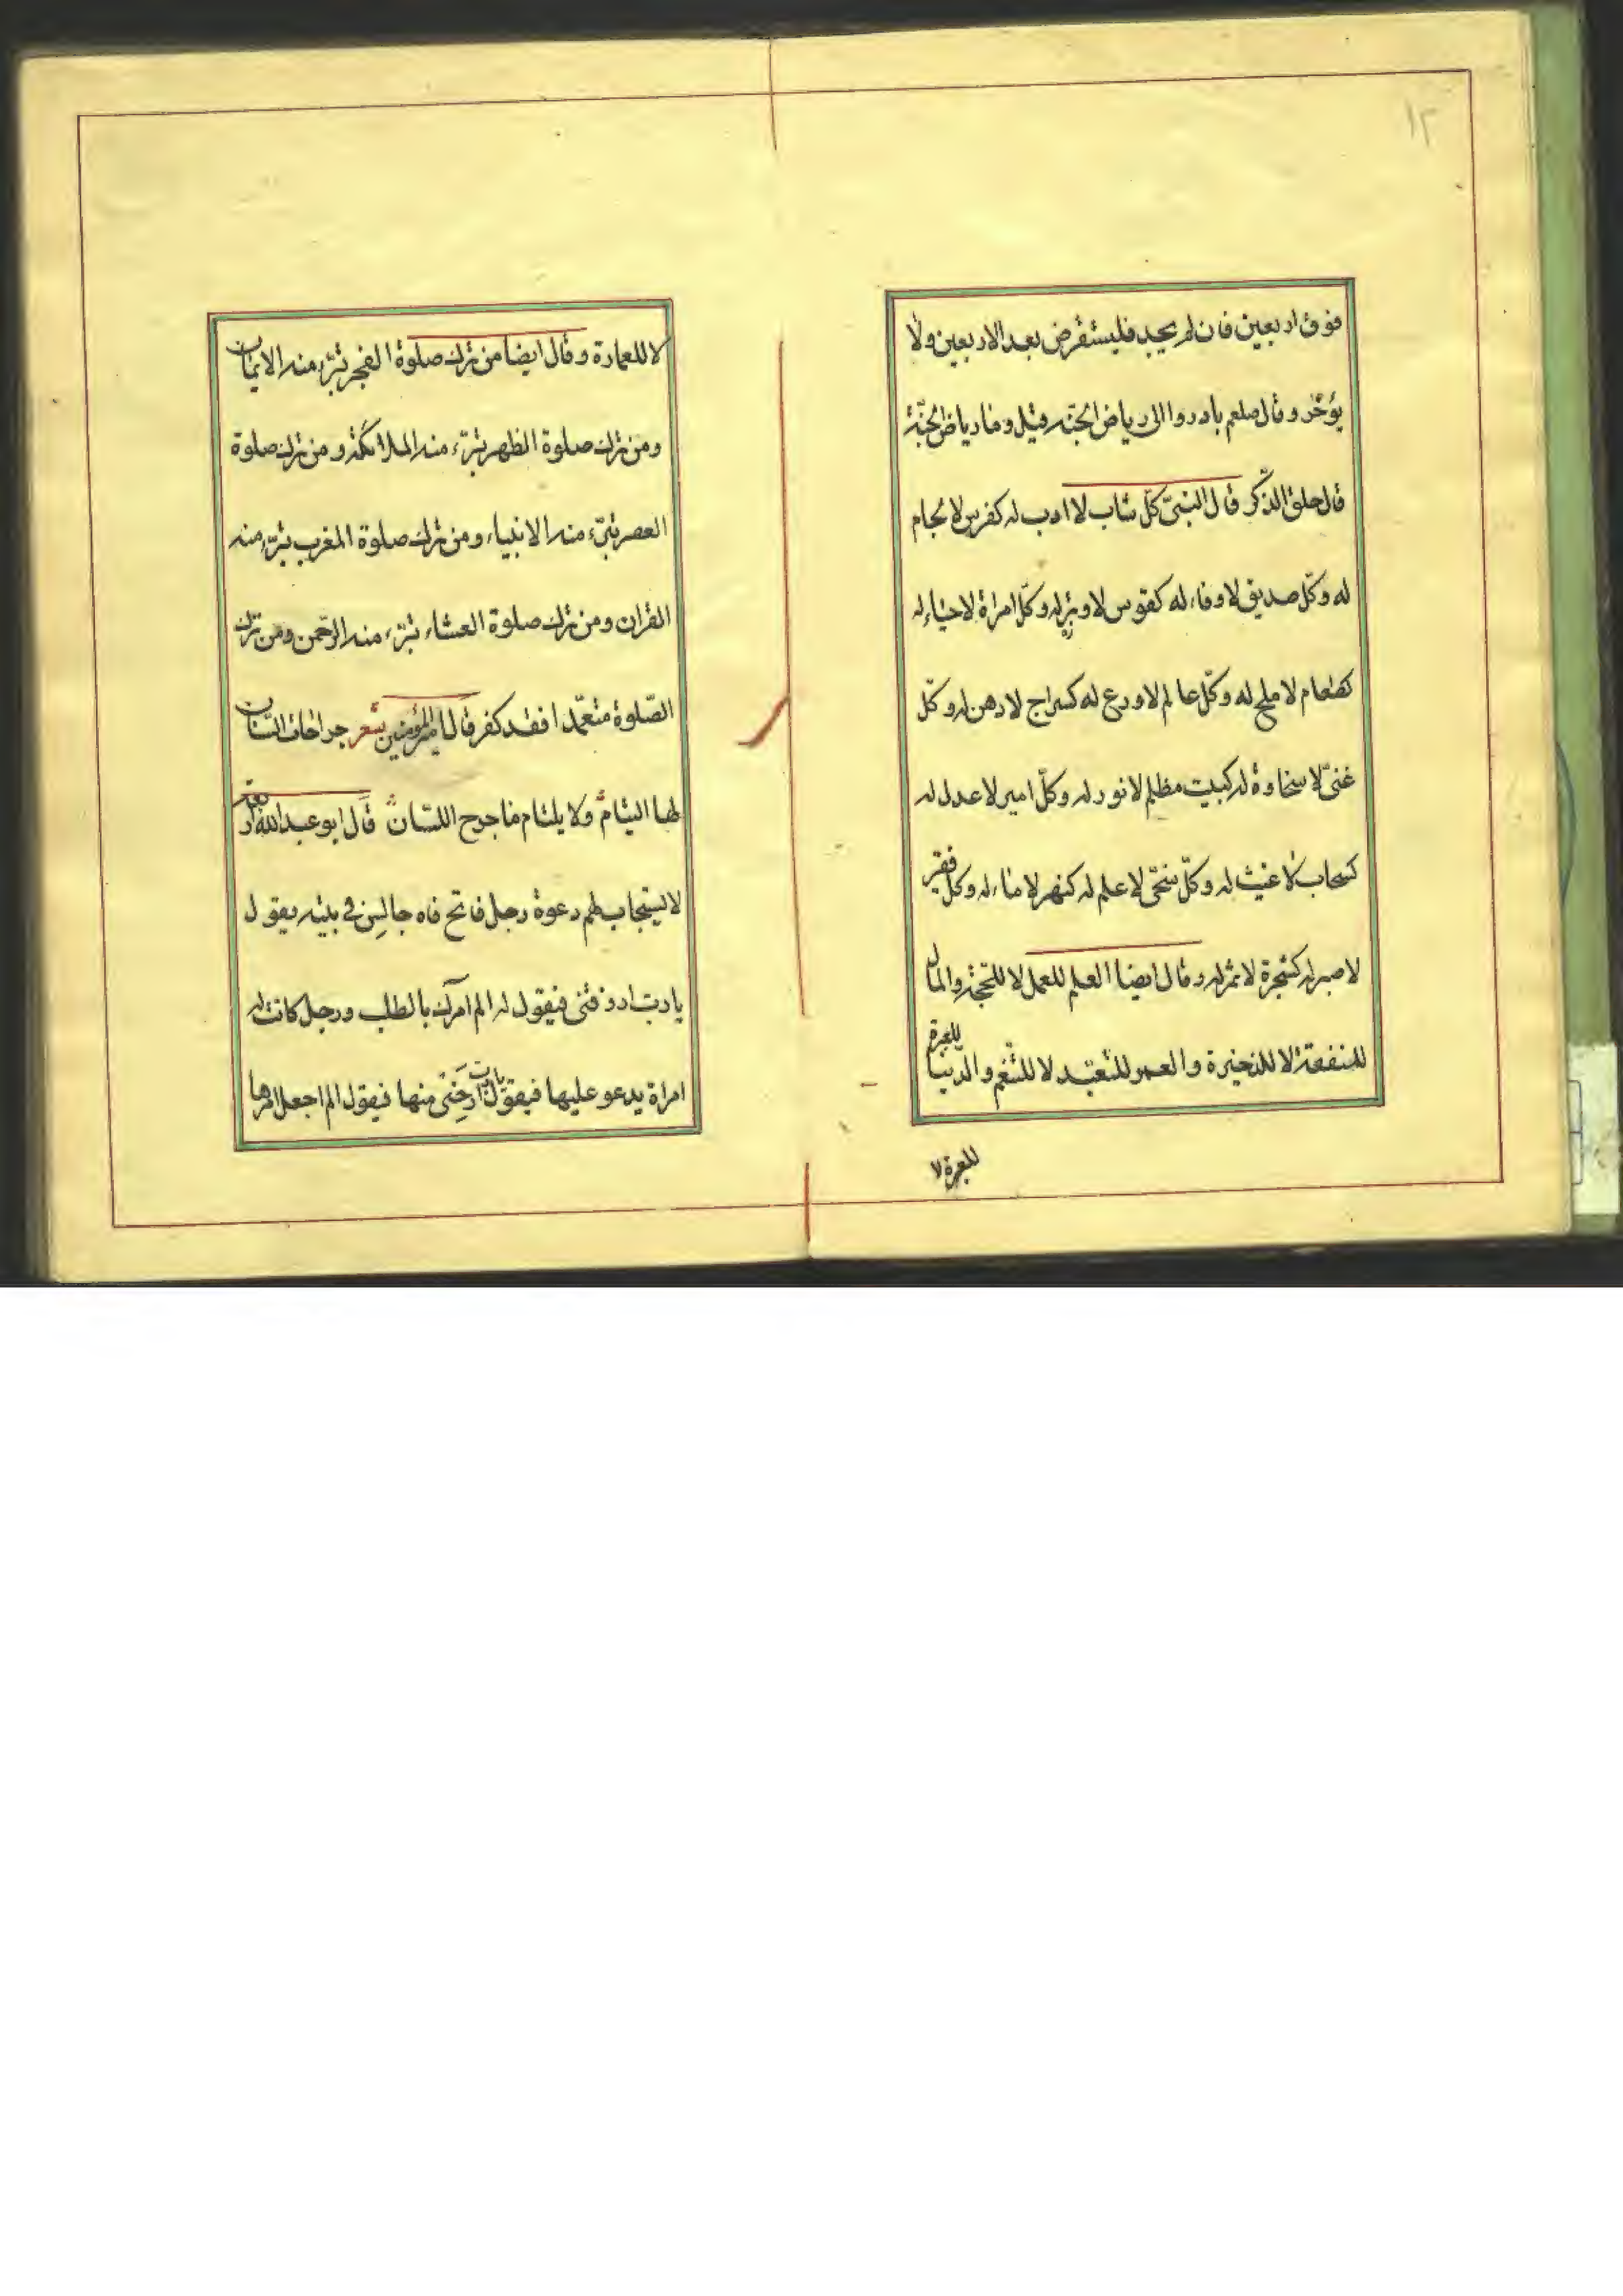 ١٢
فوق اربعين فان لم يجد فليستقرض بعد الاربعين ولا
يؤخّر وقال صلعم بادروا الى رياض الجنّة قيل وما رياض الجنّة
قال حلق الذّكر قال النبىّ كلّ شاب لا ادب له كفرس لا لجام
له وكلّ صديق لا وفاء له كقوس لا وتر له وكلّ امراة لا حياء له
كطعام لا ملح له وكلّ عالم لا ورع له كسراج لا دهن له وكلّ
غنىّ لا سخاوة له كبيت مظلم لا نور له وكلّ امير لا عدل له
كسحاب لا غيث له وكلّ سخىّ لا علم له كنهر لا ماء له وكلّ فقير
لا صبر له كشجرة لا ثمر له وقال ايضا العلم للعمل لا للحّجة والمال
للمنفعة لا للذخيرة والعمر للتّعبّد لا للتّنعّم والدّنيا للعبرة
للعبرة لا
لا للعمارة وقال ايضا من ترك صلوة الفجر تبرّء منه الايمان
ومن ترك صلوة الظهر تبرّء منه الملائكة ومن ترك صلوة
العصر تبرّء منه الانبياء ومن ترك صلوة المغرب تبرّء منه
القران ومن ترك صلوة العشاء تبرّء منه الرّحمن ومن ترك
الصّلوة متعمّدا فقد كفر قال اميرالمؤمنين شعر جراحات السّنان
لها التيام ولا يلتام ما جرح اللسان قال ابو عبدالله اربعة
لا يستجاب لهم دعوة رجل فاتح فاه جالس فى بيته يقول
يا ربّ ارزقنى فيقول له الم آمرك بالطلب ورجل كانت له
امراة يدعو عليها فيقول يا ربّ ارحنى منها فيقول الم اجعل امرها